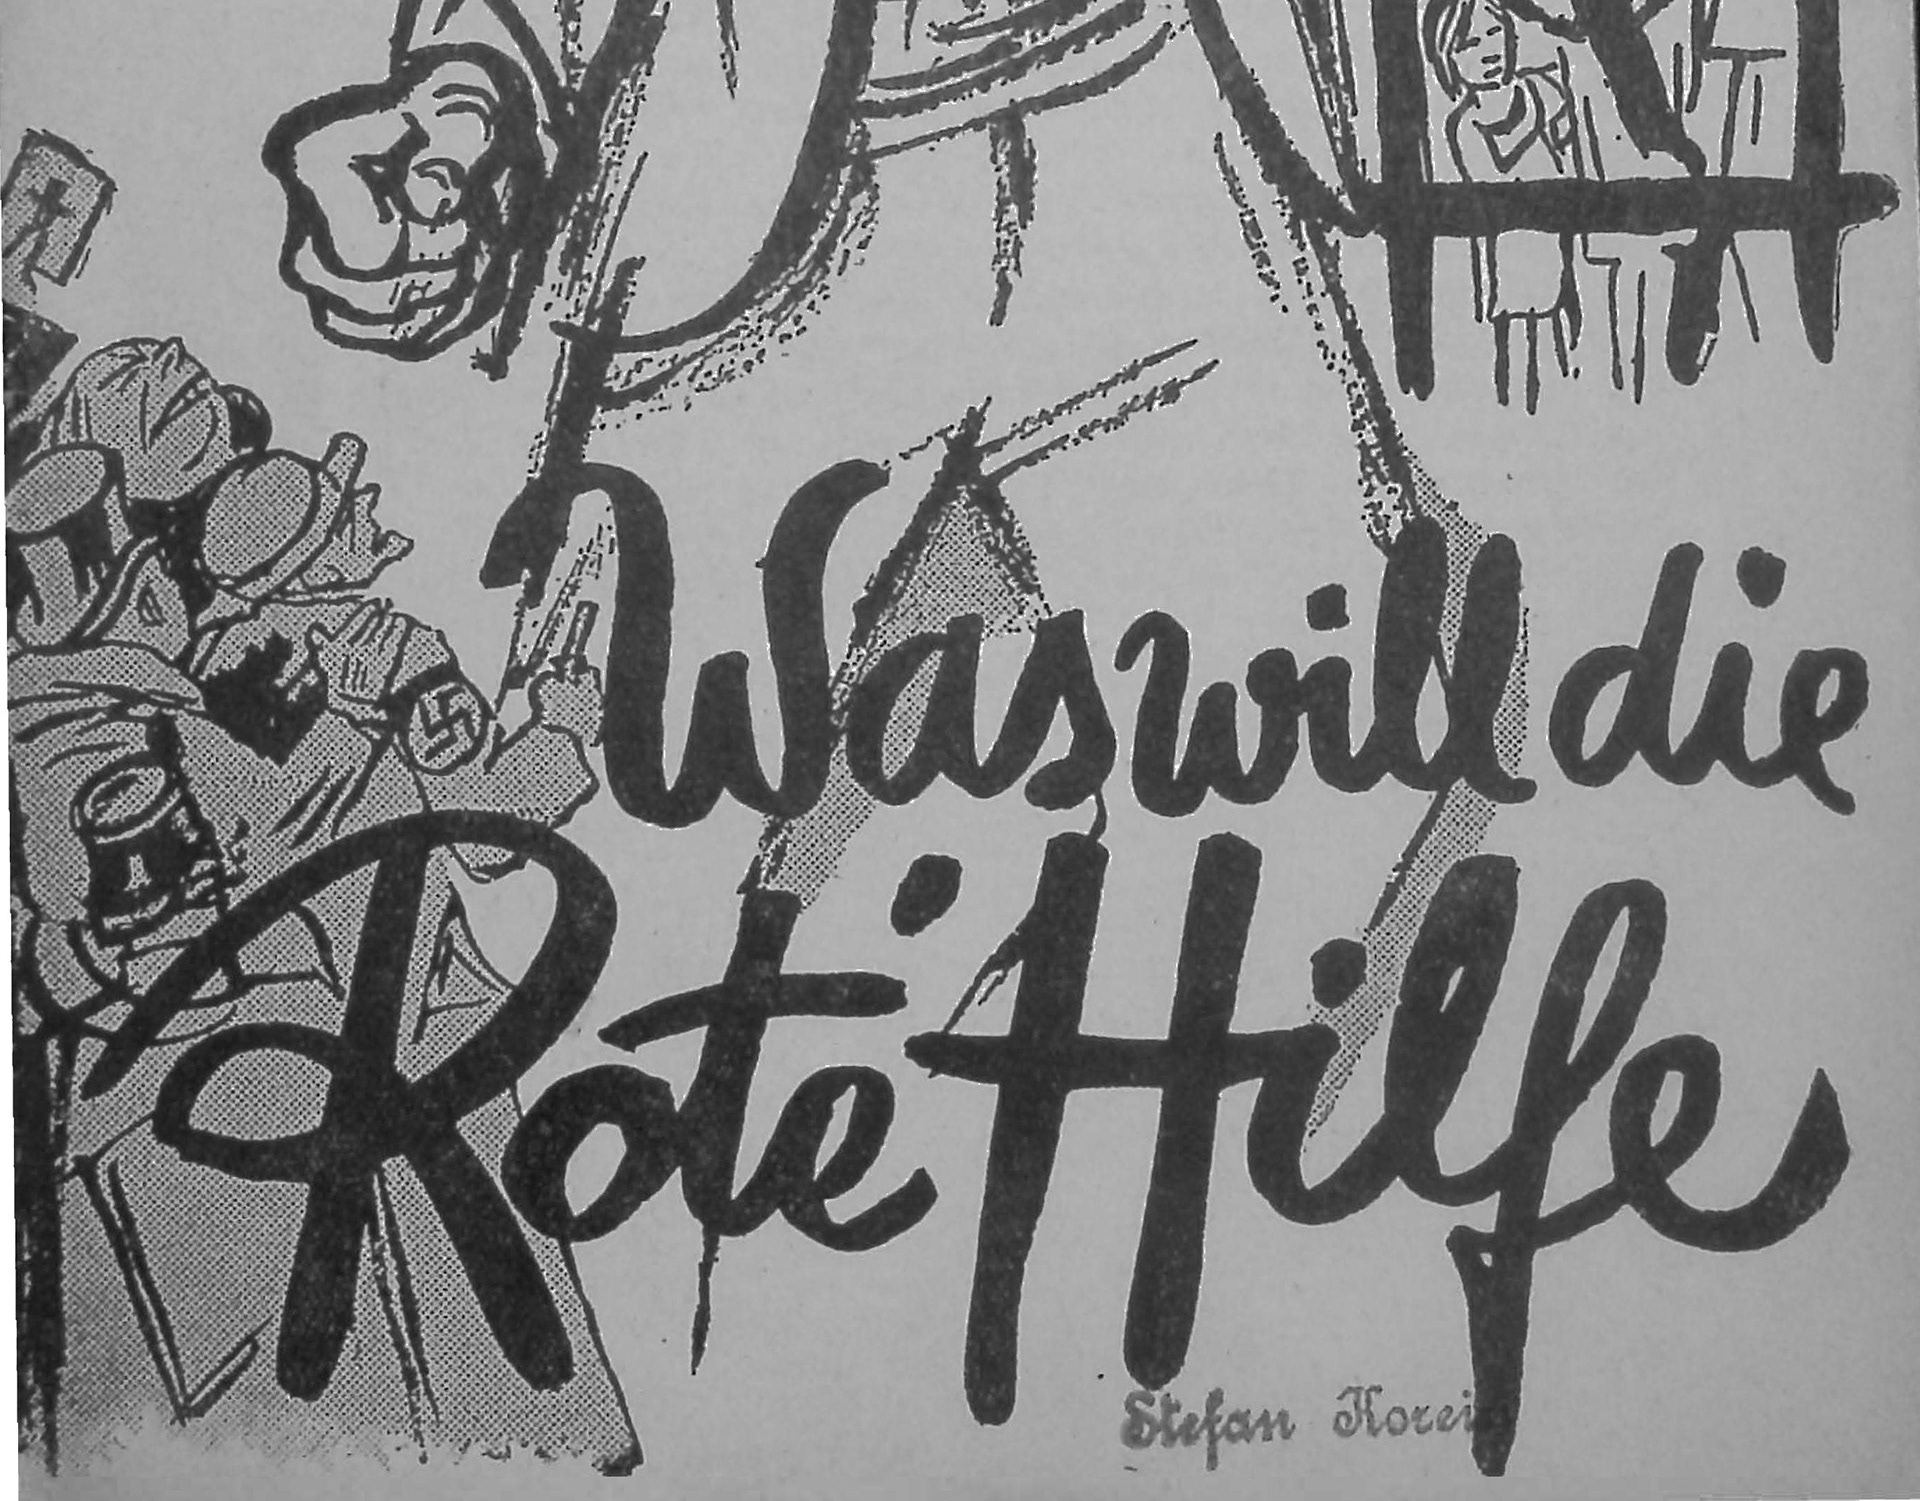 Was will die
Rote Hilfe
Stefan